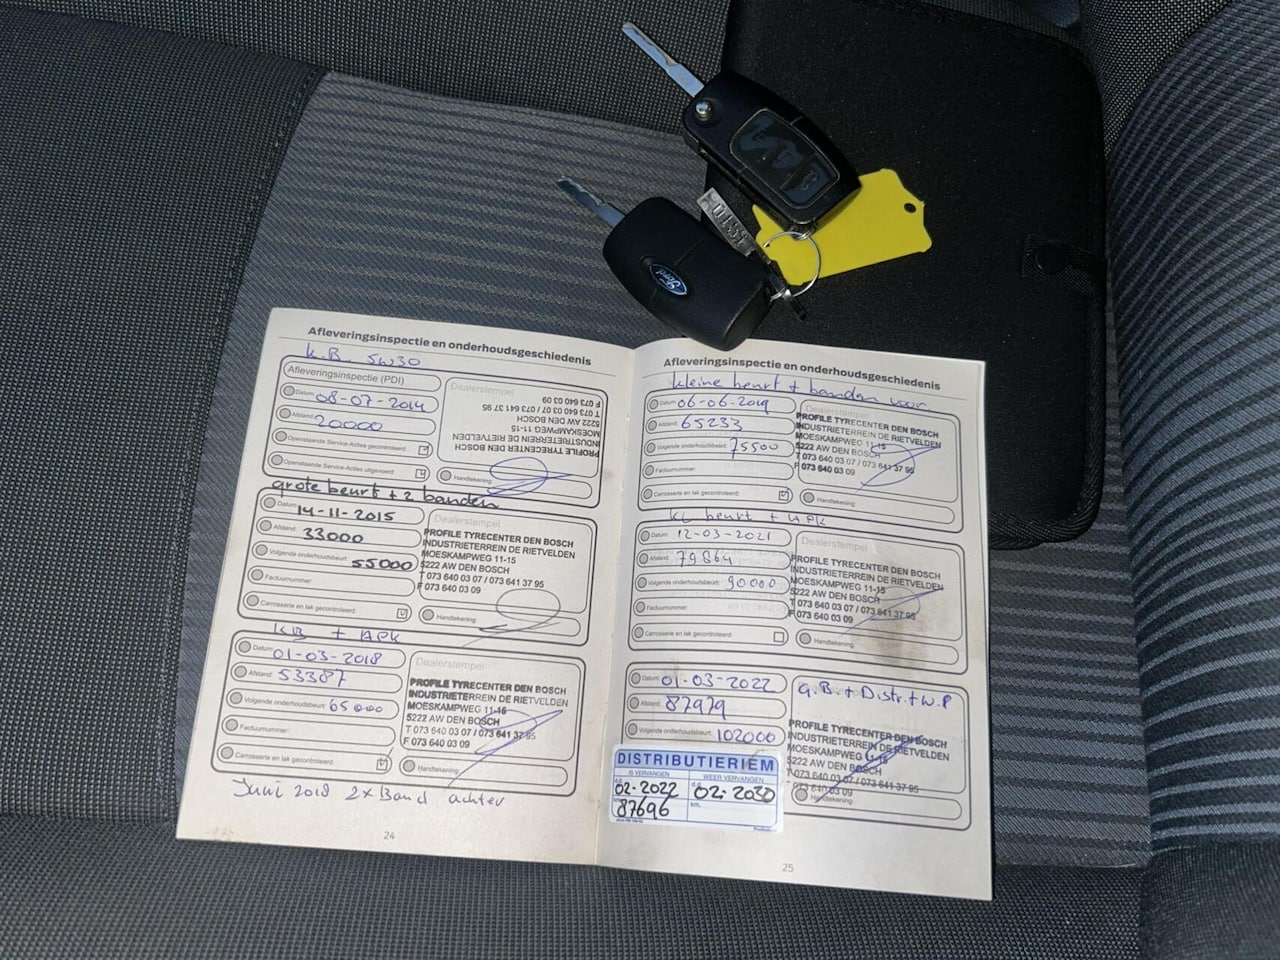 Afleveringsinspectie en onderhoudsgeschiedenis
K.B. 5W30
Afleveringsinspectie (PDI)
Datum: 08-07-2014
Afstand: 20000
Openstaande Service-Acties gecontroleerd:
Openstaande Service-Acties uitgevoerd:
Dealerstempel
PROFILE TYRECENTER DEN BOSCH
INDUSTRIETERREIN DE RIETVELDEN
MOESKAMPWEG 11-15
5222 AW DEN BOSCH
T 073 640 03 07 / 073 641 37 95
F 073 640 03 09
Handtekening:
grote beurt + 2 banden
Datum: 14-11-2015
Afstand: 33000
Volgende onderhoudsbeurt: 55000
Factuurnummer:
Carrosserie en lak gecontroleerd:
Dealerstempel
PROFILE TYRECENTER DEN BOSCH
INDUSTRIETERREIN DE RIETVELDEN
MOESKAMPWEG 11-15
5222 AW DEN BOSCH
T 073 640 03 07 / 073 641 37 95
F 073 640 03 09
Handtekening:
KB + APK
Datum: 01-03-2018
Afstand: 53387
Volgende onderhoudsbeurt: 65000
Factuurnummer:
Carrosserie en lak gecontroleerd:
Dealerstempel
PROFILE TYRECENTER DEN BOSCH
INDUSTRIETERREIN DE RIETVELDEN
MOESKAMPWEG 11-15
5222 AW DEN BOSCH
T 073 640 03 07 / 073 641 37 95
F 073 640 03 09
Handtekening:
Juni 2018 2x Band achter
24
Afleveringsinspectie en onderhoudsgeschiedenis
kleine beurt + banden voor
Datum: 06-06-2019
Afstand: 65233
Volgende onderhoudsbeurt: 75500
Factuurnummer:
Carrosserie en lak gecontroleerd:
Dealerstempel
PROFILE TYRECENTER DEN BOSCH
INDUSTRIETERREIN DE RIETVELDEN
MOESKAMPWEG 11-15
5222 AW DEN BOSCH
T 073 640 03 07 / 073 641 37 95
F 073 640 03 09
Handtekening:
KL beurt + APK
Datum: 12-03-2021
Afstand: 79864
Volgende onderhoudsbeurt: 90000
Factuurnummer:
Carrosserie en lak gecontroleerd:
Dealerstempel
PROFILE TYRECENTER DEN BOSCH
INDUSTRIETERREIN DE RIETVELDEN
MOESKAMPWEG 11-15
5222 AW DEN BOSCH
T 073 640 03 07 / 073 641 37 95
F 073 640 03 09
Handtekening:
Datum: 01-03-2022
Afstand: 87979
Volgende onderhoudsbeurt: 102000
G.B. + Distr. + W.P
PROFILE TYRECENTER DEN BOSCH
INDUSTRIETERREIN DE RIETVELDEN
MOESKAMPWEG 11-15
5222 AW DEN BOSCH
T 073 640 03 07 / 073 641 37 95
F 073 640 03 09
Handtekening:
DISTRIBUTIERIEM
IS VERVANGEN
WEER VERVANGEN
02-2022
02-2030
87696
km.
25
Ford